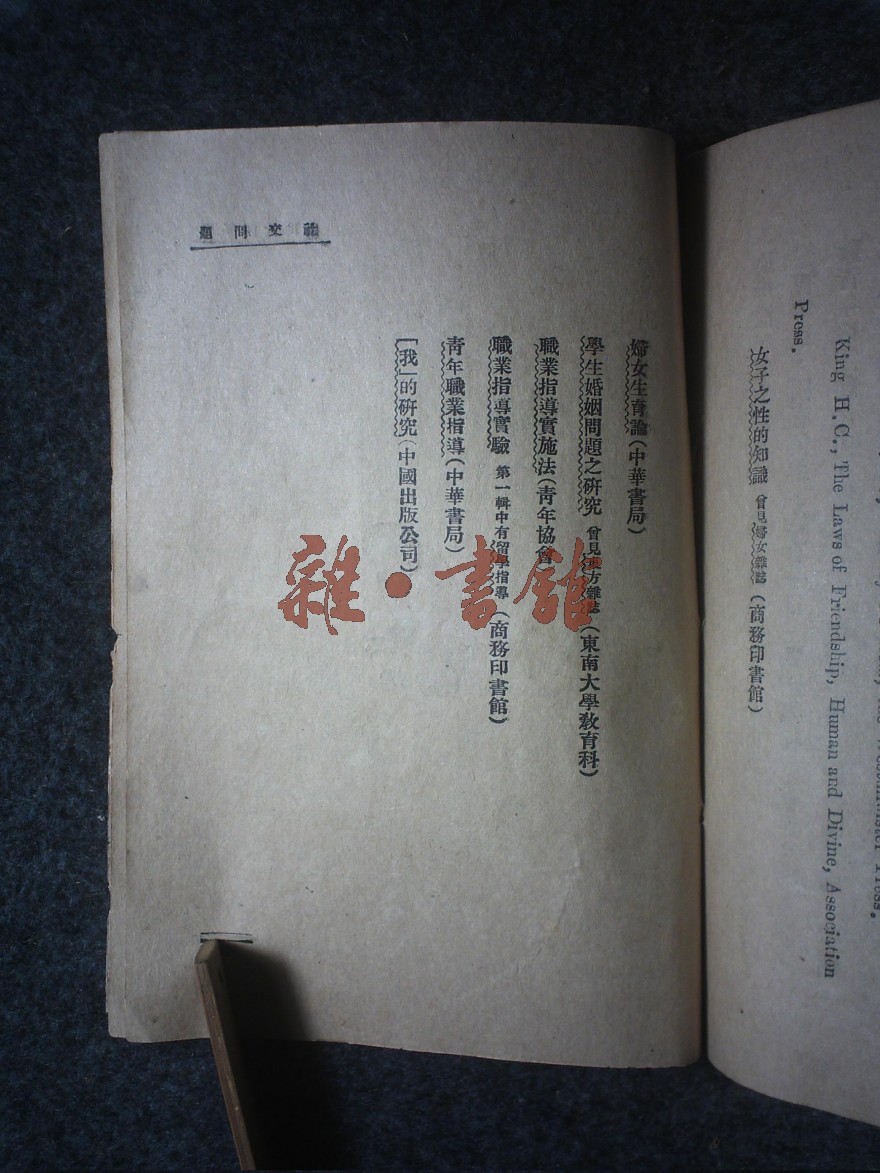 King H.C., The Laws of Friendship, Human and Divine, Association
Press.
女子之性的知識 曾見婦女雜誌 (商務印書館)
社交問題
婦女生育論(中華書局)
學生婚姻問題之研究 曾見東方雜誌 (東南大學教育科)
職業指導實施法(青年協會
職業指導實驗 第一輯中有留學指導 (商務印書館)
青年職業指導(中華書局)
「我」的研究(中國出版公司)
雜·書館